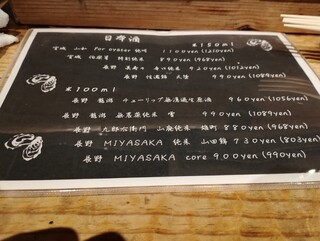 日本酒
※150ml
宮城 山和 For oyster 純吟 1100yen(1210yen)
宮城 伯楽星 特別純米 890yen(968yen)
長野 美寿々 辛口純米 920yen(1012yen)
長野 信濃鶴 990yen(1089yen)
※100ml
長野 龍沢 チューリップ 無濾過生原酒 960yen(1056yen)
長野 龍沢 純米 990yen(1089yen)
長野 九郎右衛門 山廃純米 雄町 880yen(968yen)
長野 MIYASAKA 純米 山田錦 730yen(803yen)
長野 MIYASAKA core 900yen(990yen)